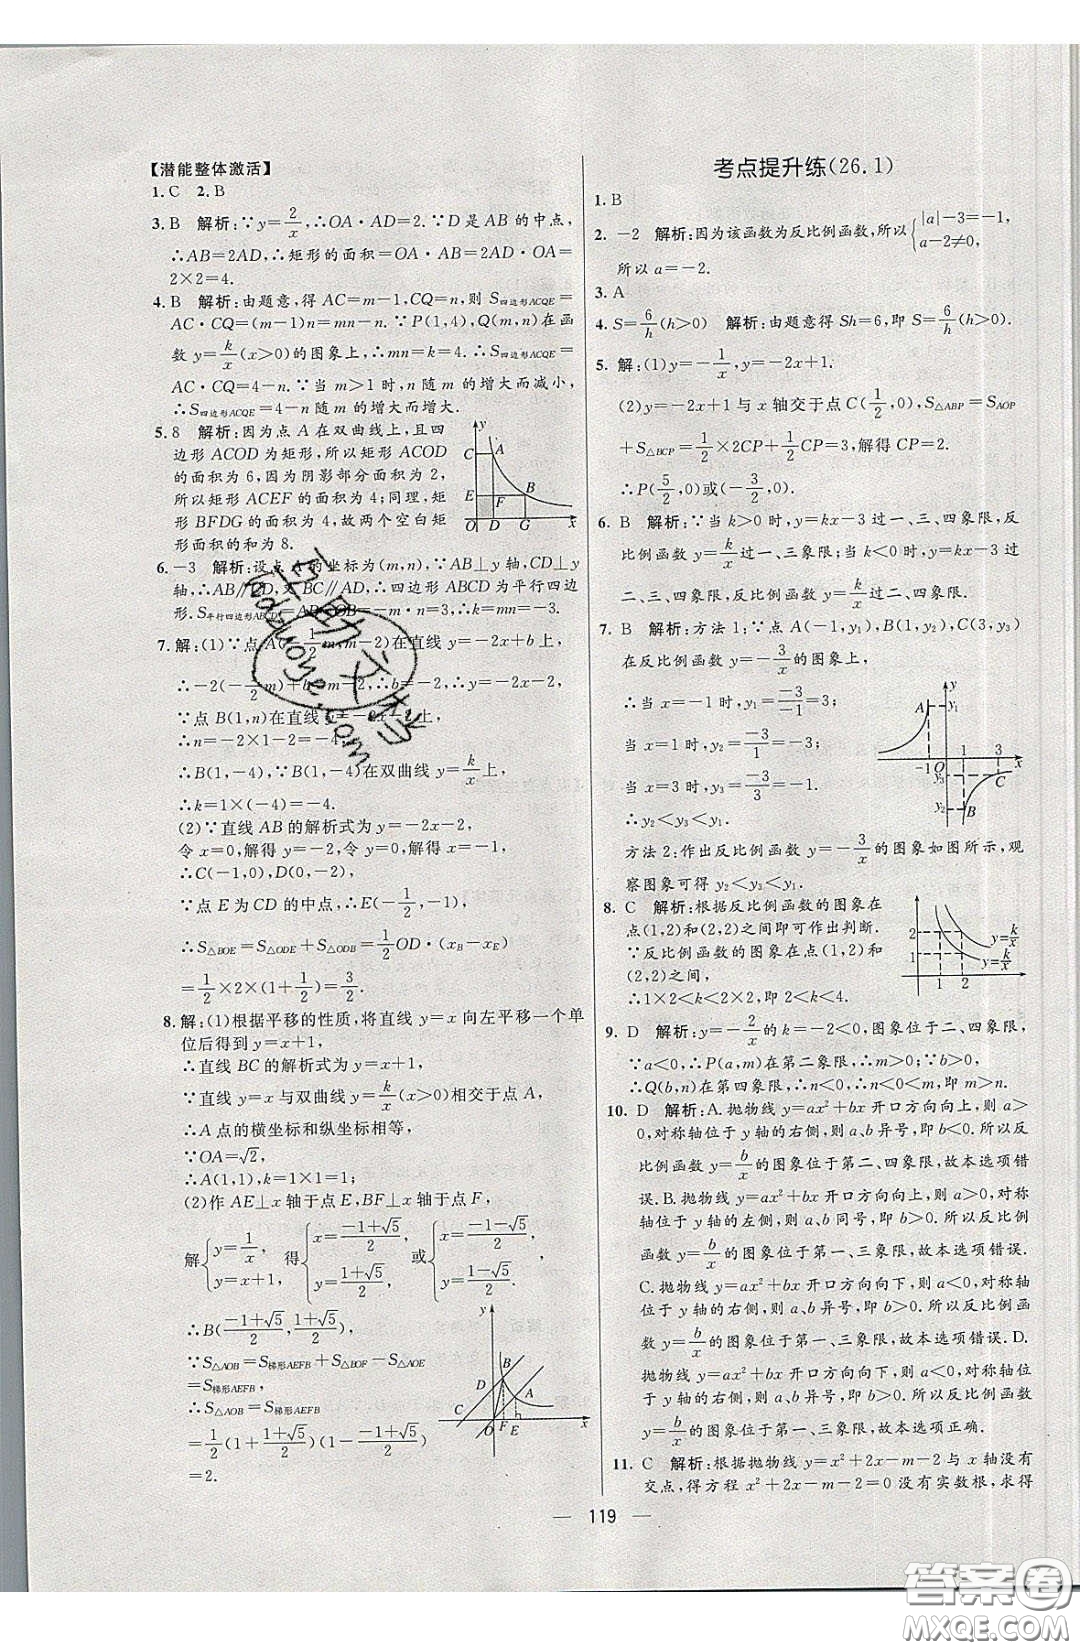 【潜能整体激活】
1. C  2. B
3. B  解析:∵y=2/x,∴OA·AD=2.∵D是AB的中点,
∴AB=2AD,∴矩形的面积=OA·AB=2AD·OA=
2×2=4.
4. B  解析:由题意,得AC=m-1,CQ=n,则S四边形ACQE=
AC·CQ=(m-1)n=mn-n.∵P(1,4),Q(m,n)在函
数y=k/x(x>0)的图象上,∴mn=k=4.∴S四边形ACQE=
AC·CQ=4-n.∵当m>1时,n随m的增大而减小,
∴S四边形ACQE=4-n随m的增大而增大.
5. 8  解析:因为点A在双曲线上,且四
边形ACOD为矩形,所以矩形ACOD
的面积为6,因为阴影部分面积为2,
所以矩形ACEF的面积为4;同理,矩
形BFDG的面积为4,故两个空白矩
形面积的和为8.
y
C A
E F B
O D G x
6. -3  解析:设点A的坐标为(m,n),∵AB⊥y轴,CD⊥y
轴,∴AB∥CD,又BC∥AD,∴四边形ABCD为平行四边
形.S平行四边形ABCD=AB·OB=-m·n=3,∴k=mn=-3.
7. 解:(1)∵点A(-1/2m,m-2)在直线y=-2x+b上,
∴-2(-1/2m)+b=m-2,∴b=-2,
∵点B(1,n)在直线y=-2x-2上,
∴n=-2×1-2=-4,
∴B(1,-4),∵B(1,-4)在双曲线y=k/x上,
∴k=1×(-4)=-4.
(2)∵直线AB的解析式为y=-2x-2,
令x=0,解得y=-2,令y=0,解得x=-1,
∴C(-1,0),D(0,-2),
∵点E为CD的中点,∴E(-1/2,-1),
∴S△BOE=S△ODE+S△ODB=1/2OD·(xB-xE)
=1/2×2×(1+1/2)=3/2.
8. 解:(1)根据平移的性质,将直线y=x向左平移一个单
位后得到y=x+1,
∴直线BC的解析式为y=x+1,
∵直线y=x与双曲线y=k/x(x>0)相交于点A,
∴A点的横坐标和纵坐标相等,
∵OA=√2,
∴A(1,1),k=1×1=1.
(2)作AE⊥x轴于点E,BF⊥x轴于点F,
解{y=1/x, y=x+1,得{x=(-1+√5)/2, y=(1+√5)/2或{x=(-1-√5)/2, y=(1-√5)/2.
∴B((-1+√5)/2,(1+√5)/2),
∵S△AOB=S梯形AEFB+S△BOF-S△AOE
=S梯形AEFB,
∴S△AOB=S梯形AEFB
=1/2(1+(1+√5)/2)(1-(-1+√5)/2)
=2.
y
B
D A
C O F E x
考点提升练(26.1)
1. B
2. -2  解析:因为该函数为反比例函数,所以{|a|-3=-1, a-2≠0,
所以a=-2.
3. A
4. S=6/h(h>0)  解析:由题意得Sh=6,即S=6/h(h>0).
5. 解:(1)y=-1/x,y=-2x+1.
(2)y=-2x+1与x轴交于点C(1/2,0),S△ABP=S△AOP
+S△BCP=1/2×2CP+1/2×1·CP=3,解得CP=2.
∴P(5/2,0)或(-3/2,0).
6. B  解析:∵当k>0时,y=kx-3过一、三、四象限,反
比例函数y=k/x过一、三象限,当k<0时,y=kx-3过
二、三、四象限,反比例函数y=k/x过二、四象限.
7. B  解析:方法1:∵点A(-1,y₁),B(1,y₂),C(3,y₃)
在反比例函数y=-3/x的图象上,
∴当x=-1时,y₁=-3/-1=3;
当x=1时,y₂=-3/1=-3;
当x=3时,y₃=-3/3=-1.
∴y₂<y₃<y₁.
y
A y₁
-1 O 1 3 x
y₃ C
y₂ B
方法2:作出反比例函数y=-3/x的图象如图所示,观
察图象可得y₂<y₃<y₁.
8. C  解析:根据反比例函数的图象在
点(1,2)和(2,2)之间即可作出判断.
∵反比例函数的图象在点(1,2)和
(2,2)之间,
∴1×2<k<2×2,即2<k<4.
2
1
y=k/x
y=k/x
1 2
9. D  解析:y=-2/x的k=-2<0,图象位于二、四象限,
∵a<0,∴P(a,m)在第二象限,∴m>0;∵b>0,
∴Q(b,n)在第四象限,∴n<0.∴n<0<m,即m>n.
10. D  解析:A.抛物线y=ax²+bx开口方向向上,则a>
0,对称轴位于y轴的右侧,则a、b异号,即b<0.所以反
比例函数y=b/x的图象位于第二、四象限,故本选项错
误.B.抛物线y=ax²+bx开口方向向上,则a>0,对称
轴位于y轴的左侧,则a、b同号,即b>0.所以反比例
函数y=b/x的图象位于第一、三象限,故本选项错误.
C.抛物线y=ax²+bx开口方向向下,则a<0,对称轴
位于y轴的右侧,则a、b异号,即b>0.所以反比例函
数y=b/x的图象位于第一、三象限,故本选项错误.D.
抛物线y=ax²+bx开口方向向下,则a<0,对称轴位
于y轴的右侧,则a、b异号,即b>0.所以反比例函数
y=b/x的图象位于第一、三象限,故本选项正确.
11. C  解析:根据抛物线y=x²+2x-m-2与x轴没有
交点,得方程x²+2x-m-2=0没有实数根,求得
— 119 —
答案圈
MXQE.COM